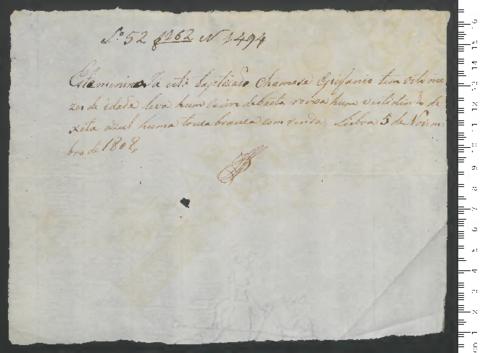 Nº 52 1262 N 1494
Esta menina Já está baptizada Chamase Epifania tem oito me
zes de idade leva hum coeiro de baeta roixa hum vestidinho de
xita azul huma touca branca com renda. Lisboa 5 de Novem
bro de 1808,